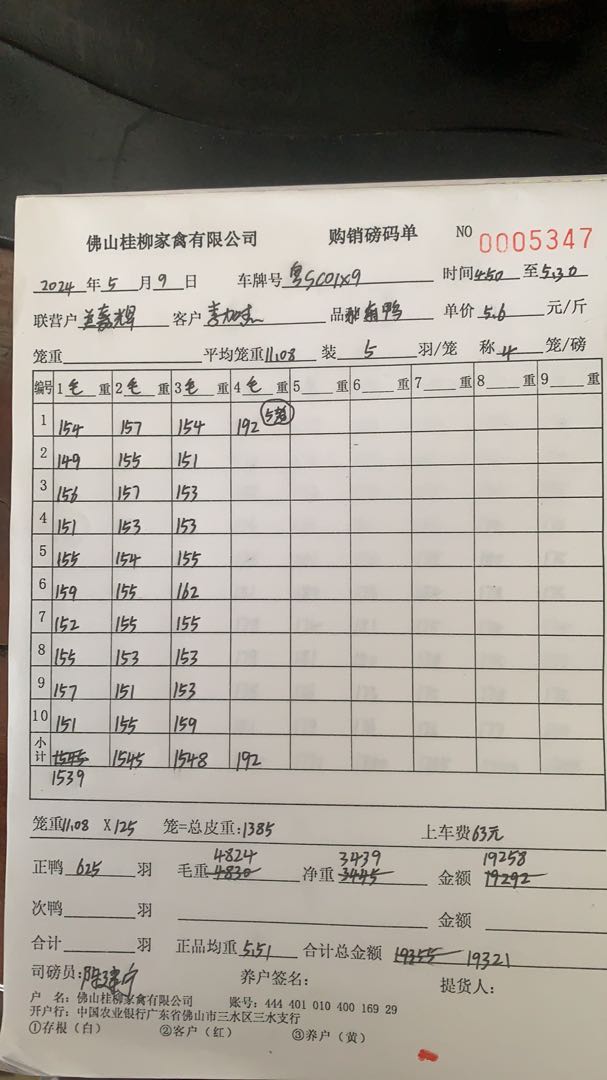 佛山桂柳家禽有限公司 购销磅码单 NO 0005347
2024 年 5 月 9 日 车牌号 粤SC01X9 时间 450 至 5.30
联营户 兰嘉辉 客户 李加志 品 鸭 单价 5.6 元/斤
笼重 平均笼重 11.08 装 5 羽/笼 称 4 笼/磅
编号 1 毛 重 2 毛 重 3 毛 重 4 毛 重 5 重 6 重 7 重 8 重 9 重
1 154 157 154 192 5笼
2 149 155 151
3 156 157 153
4 151 153 153
5 155 154 155
6 159 155 162
7 152 155 155
8 155 153 153
9 157 151 153
10 151 155 159
小计 1545 1545 1548 192
1539
笼重 11.08 X 125 笼=总皮重: 1385 上车费 63元
4824 3439 19258
正鸭 625 羽 毛重 4830 净重 3445 金额 19292
次鸭 羽 金额
合计 羽 正品均重 5.51 合计总金额 19355 19321
司磅员: 陈建宁 养户签名: 提货人:
户 名: 佛山桂柳家禽有限公司 账号: 444 401 010 400 169 29
开户行: 中国农业银行广东省佛山市三水区三水支行
①存根(白) ②客户(红) ③养户(黄)